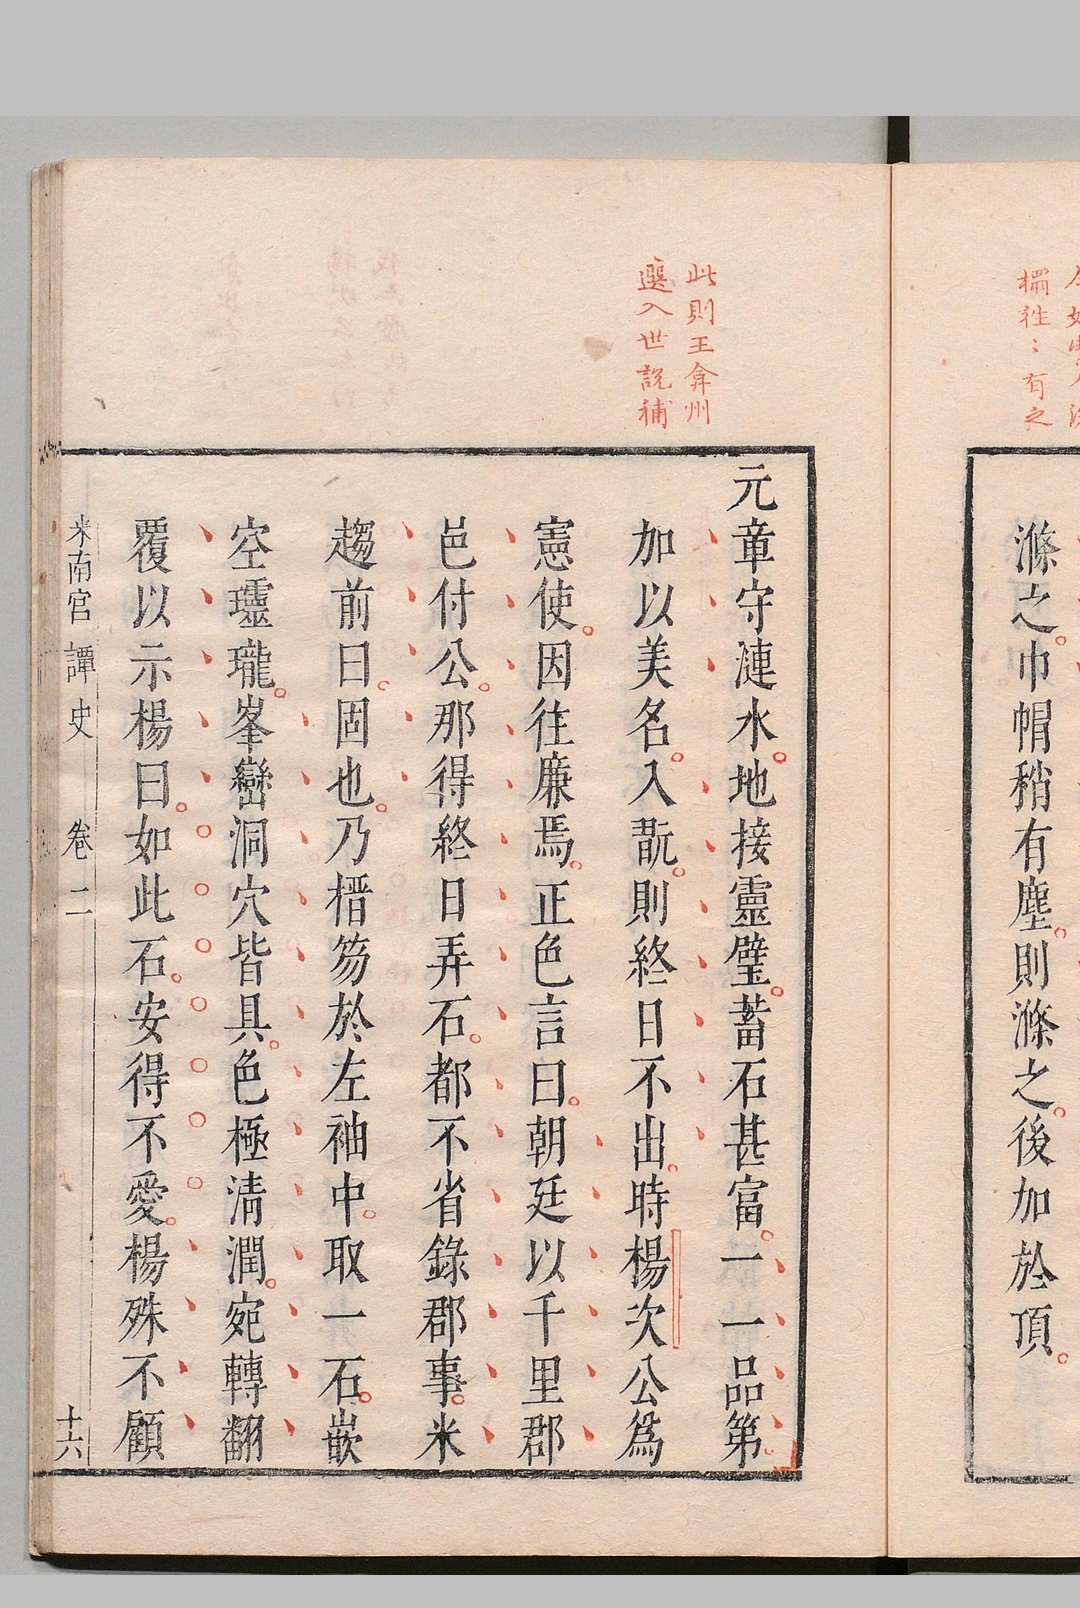 有之
滌之巾帽稍有塵。則滌之。後加於頂。
此則王弇州
選入世說補
元章守漣水。地接靈璧。蓄石甚富。一一品第。
加以美名。入翫。則終日不出。時楊次公爲
憲使。因往廉焉。正色言曰。朝廷以千里郡
邑付公。那得終日弄石。都不省錄郡事。米
趨前曰。固也。乃搢笏於左袖中。取一石。嵌
空𤫩瓏。峯巒洞穴皆具。色極清潤。宛轉翻
覆以示楊曰。如此石。安得不愛。楊殊不顧
米南宮譚史 卷二 十六